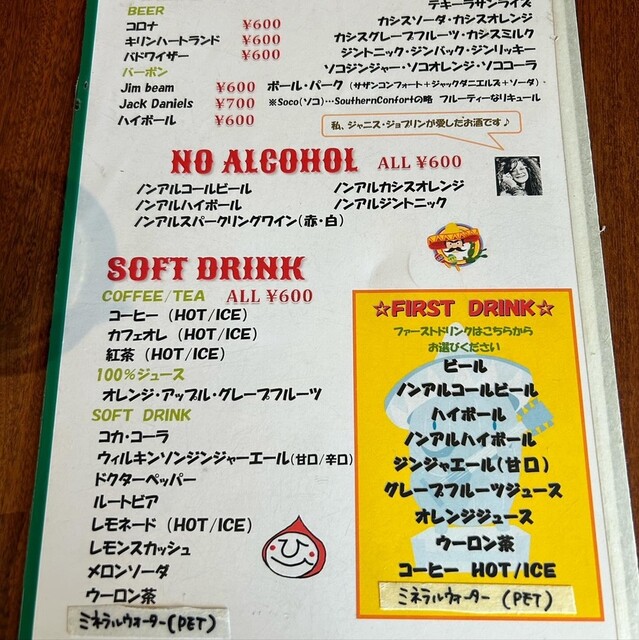 BEER
コロナ ¥600
キリンハートランド ¥600
バドワイザー ¥600
バーボン
Jim beam ¥600
Jack Daniels ¥700
ハイボール ¥600
テキーラサンライズ
カシスソーダ・カシスオレンジ
カシスグレープフルーツ・カシスミルク
ジントニック・ジンバック・ジンリッキー
ソコジンジャー・ソコオレンジ・ソココーラ
ボール・パーク (サザンコンフォート+ジャックダニエルス+ソーダ)
※Soco(ソコ)…SouthernConfortの略 フルーティーなリキュール
私、ジャニス・ジョプリンが愛したお酒です♪
NO ALCOHOL ALL ¥600
ノンアルコールビール ノンアルカシスオレンジ
ノンアルハイボール ノンアルジントニック
ノンアルスパークリングワイン(赤・白)
SOFT DRINK
COFFEE/TEA ALL ¥600
コーヒー (HOT/ICE)
カフェオレ (HOT/ICE)
紅茶 (HOT/ICE)
100%ジュース
オレンジ・アップル・グレープフルーツ
SOFT DRINK
コカ・コーラ
ウィルキンソンジンジャーエール(甘口/辛口)
ドクターペッパー
ルートビア
レモネード (HOT/ICE)
レモンスカッシュ
メロンソーダ
ウーロン茶
ミネラルウォーター(PET)
☆FIRST DRINK☆
ファーストドリンクはこちらから
お選びください
ビール
ノンアルコールビール
ハイボール
ノンアルハイボール
ジンジャエール(甘口)
グレープフルーツジュース
オレンジジュース
ウーロン茶
コーヒー HOT/ICE
ミネラルウォーター (PET)